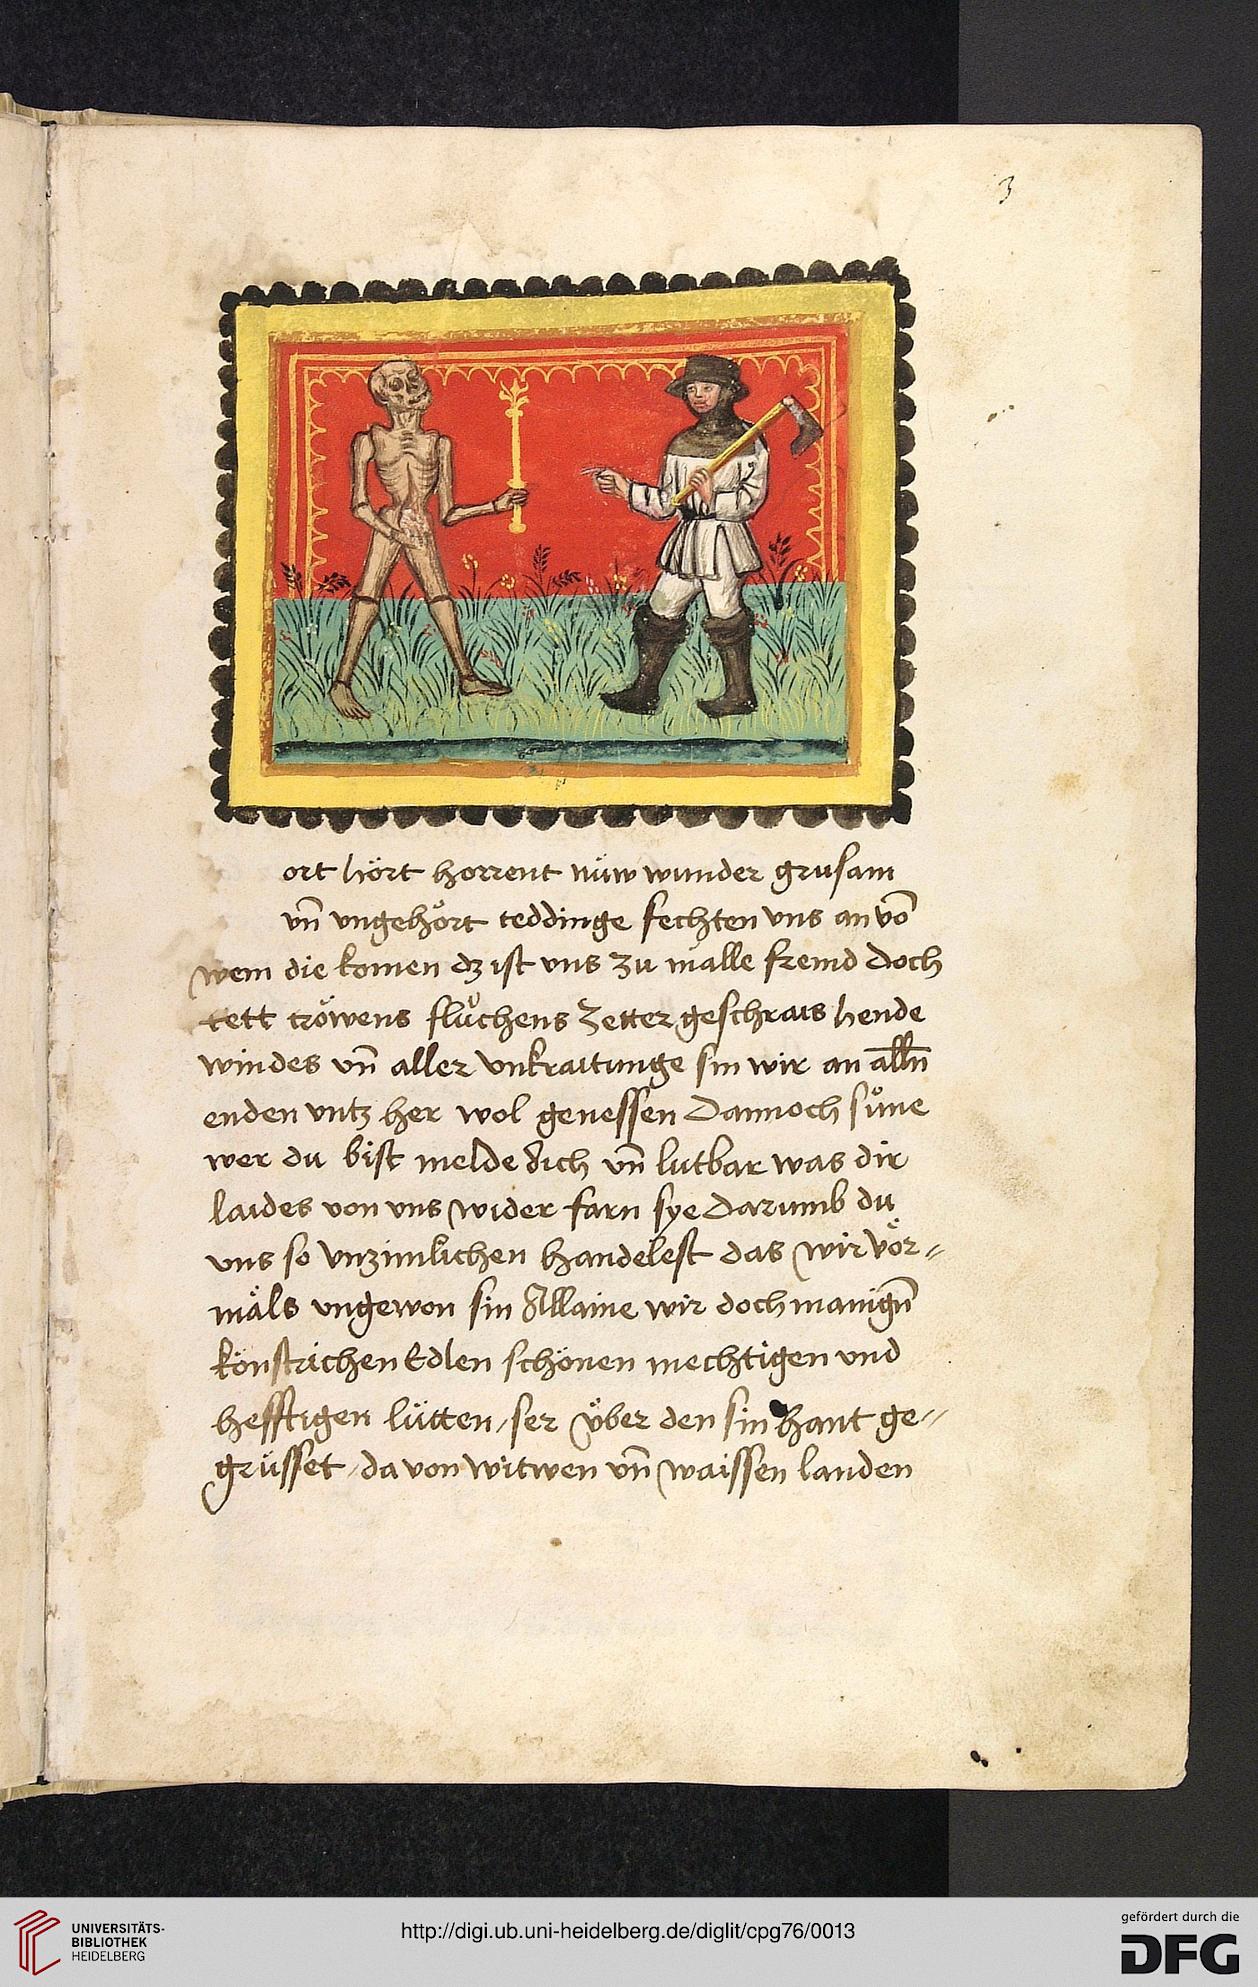 3
ort hört horrent nüw wunder grusam
vn̄ vngehört teddinge fechten vns an vō
wem die komen dz ist vns zu mälle fremd doch
tett tröwens flůchens zetter geschrais hende
windes vn̄ aller vnkraitunge sin wir an alln̄
enden vntz her wol genessen Dannoch sůne
wer du bist melde dich vn̄ lutbar was dir
laides von vns wider farn sye Darumb du
vns so vnzimlichen handelest das wir vör-
mäls vngewon sin Allaine wir doch manign̄
könstrichen Edlen schönen mechtigen vnd
hefftigen lütten / ser über den sin hant ge-
grüsset / da von witwen vn̄ waissen landen
UNIVERSITÄTS-
BIBLIOTHEK
HEIDELBERG
http://digi.ub.uni-heidelberg.de/diglit/cpg76/0013
gefördert durch die
DFG